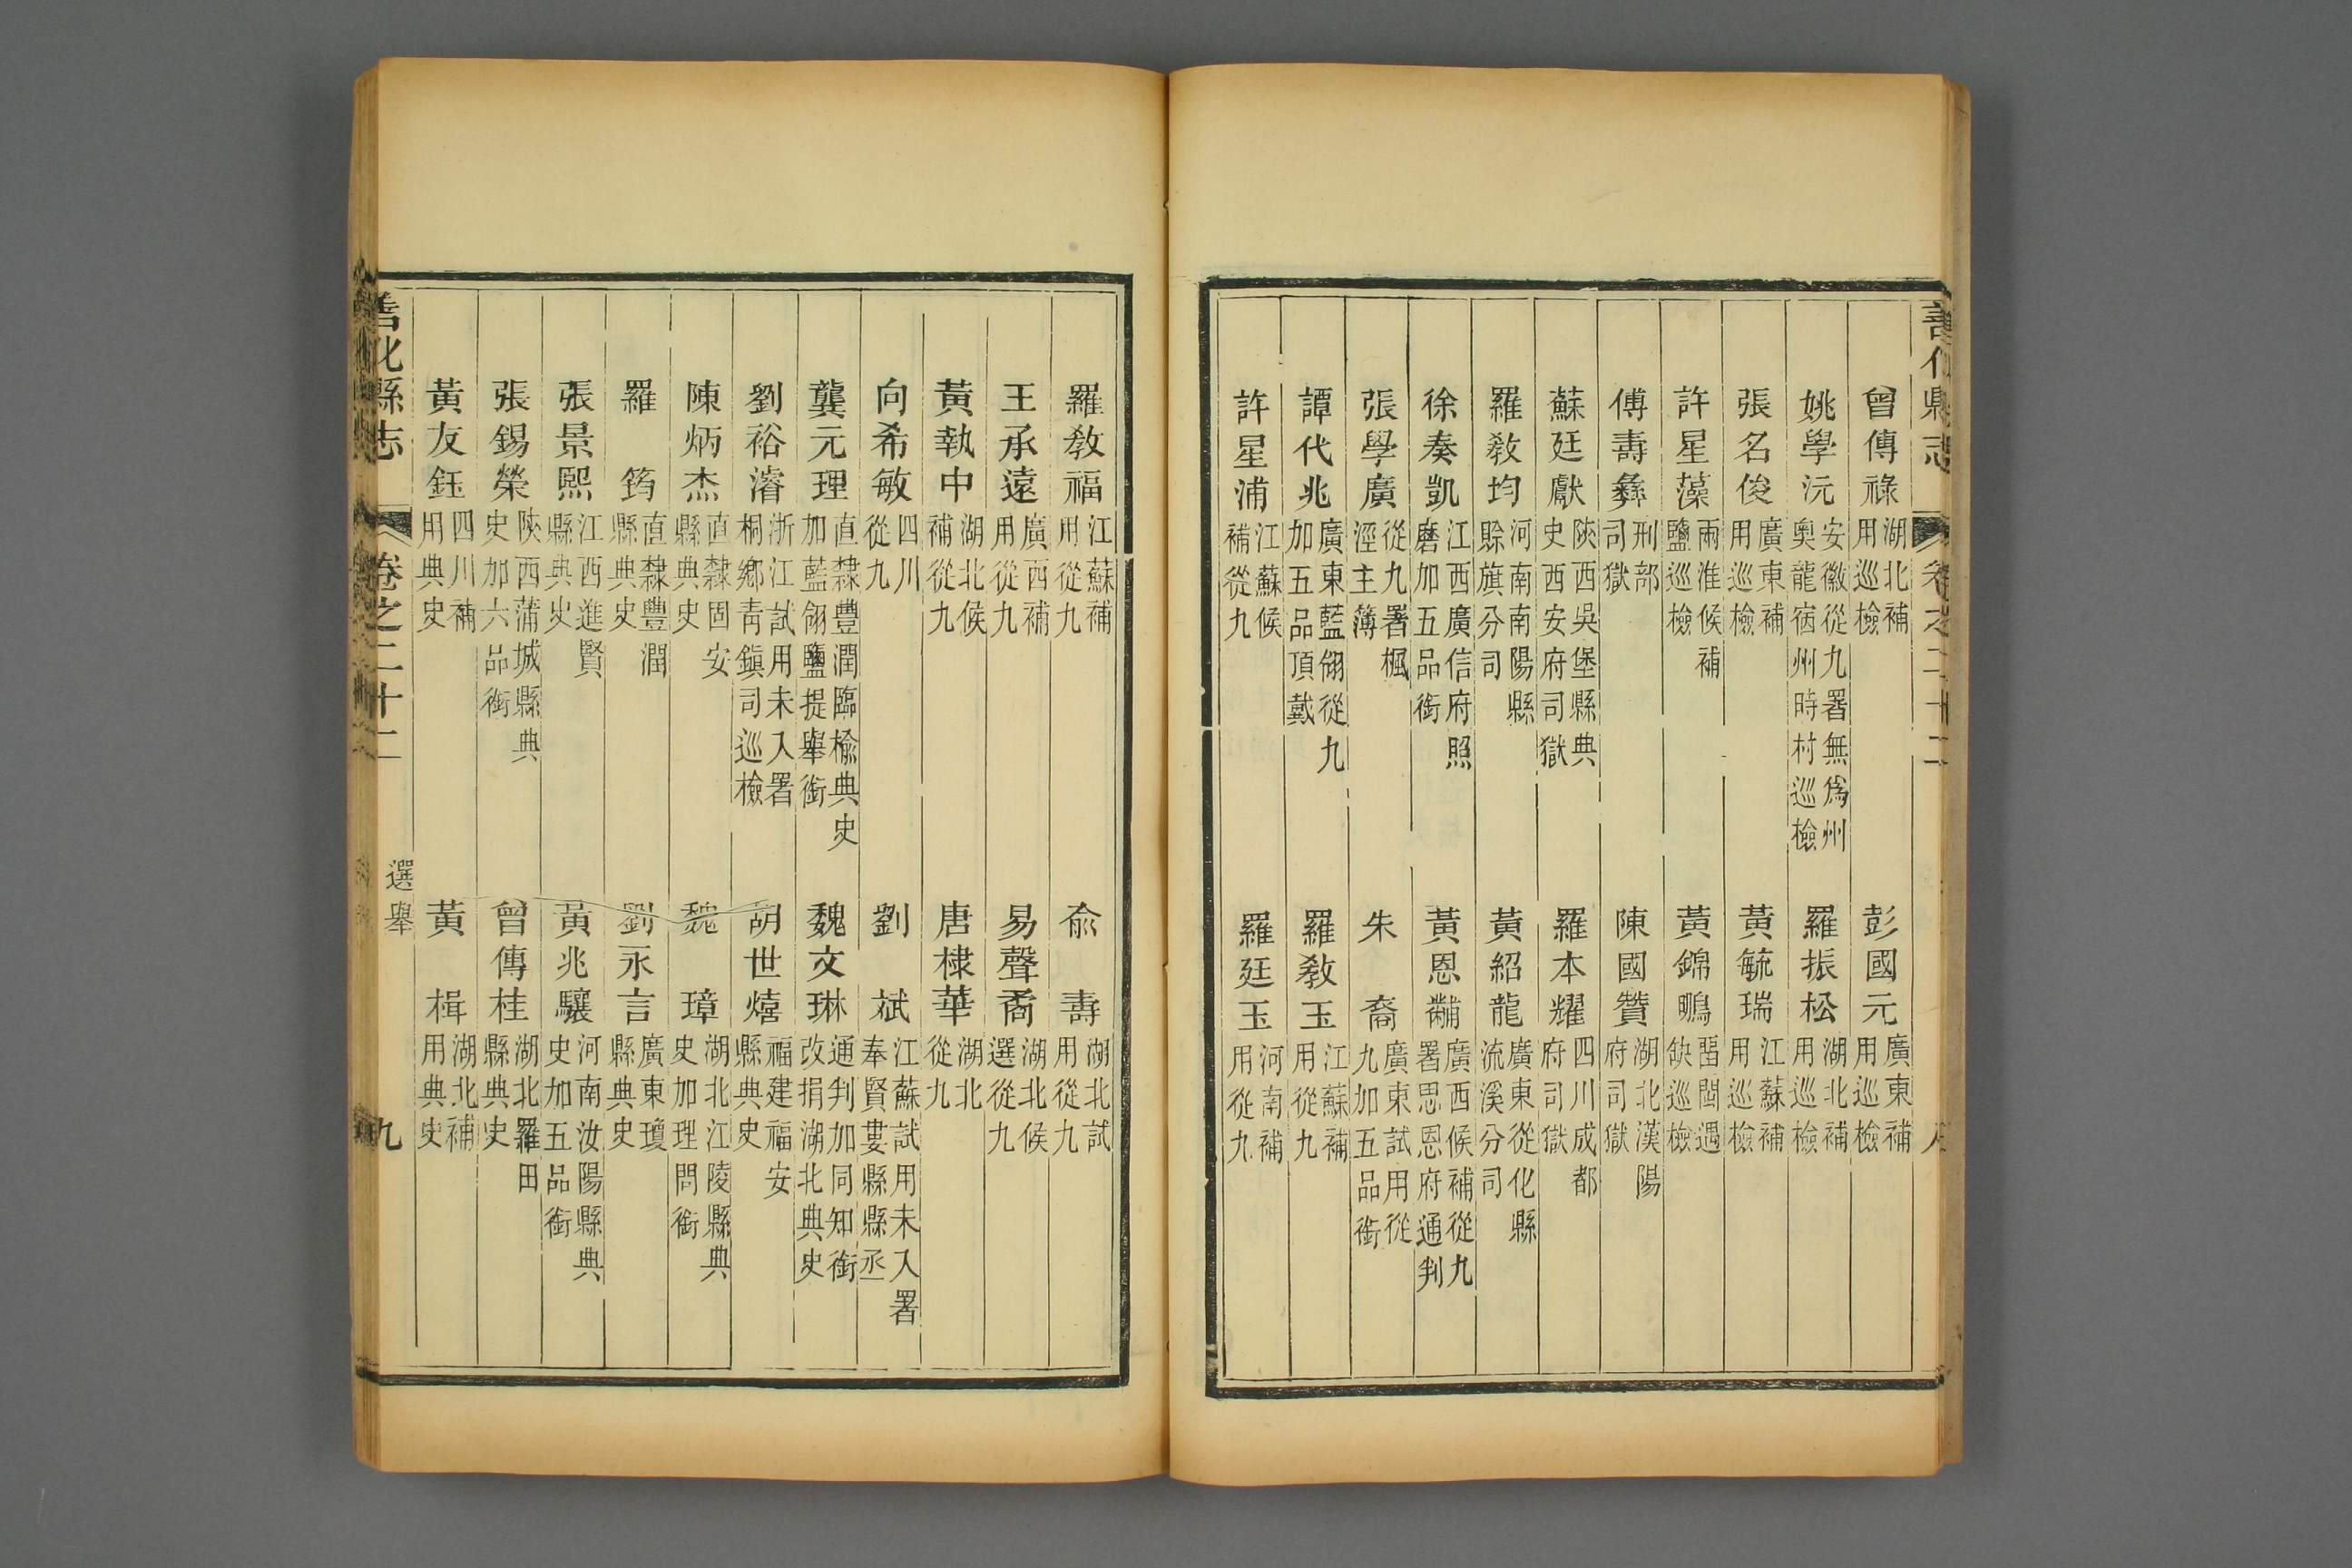 善化縣志 卷之二十二
曾傳祿 湖北補用巡檢 彭國元 廣東補用巡檢
姚學沅 安徽從九署無爲州奧龍宿州時村巡檢 羅振松 湖北補用巡檢
張名俊 廣東補用巡檢 黃毓瑞 江蘇補用巡檢
許星藻 兩淮候補鹽巡檢 黃錦鵰 留閩遇缺巡檢
傅壽彝 刑部司獄 陳國贊 湖北漢陽府司獄
蘇廷獻 陝西吳堡縣典史西安府司獄 羅本耀 四川成都府司獄
羅敎均 河南南陽縣賒旗分司 黃紹龍 廣東從化縣流溪分司
徐奏凱 江西廣信府照磨加五品銜 黃恩黼 廣西候補從九署思恩府通判
張學廣 從九署楓涇主簿 朱裔 廣東試用從九加五品銜
譚代兆 廣東藍翎從九加五品頂戴 羅敎玉 江蘇補用從九
許星浦 江蘇候補從九 羅廷玉 河南補用從九
羅敎福 江蘇補用從九 俞壽 湖北試用從九
王承遠 廣西補用從九 易聲矞 湖北候選從九
黃執中 湖北候補從九 唐棣華 湖北從九
向希敏 四川從九 劉斌 江蘇試用未入署奉賢婁縣縣丞
龔元理 直隸豐潤臨楡典史加藍翎鹽提舉銜 魏文琳 通判加同知銜改捐湖北典史
劉裕濬 浙江試用未入署桐鄉靑鎭司巡檢 胡世熺 福建福安縣典史
陳炳杰 直隸固安縣典史 魏璋 湖北江陵縣典史加理問銜
羅筠 直隸豐潤縣典史 劉永言 廣東瓊縣典史
張景熙 江西進賢縣典史 黃兆驤 河南汝陽縣典史加五品銜
張錫榮 陝西蒲城縣典史加六品銜 曾傳桂 湖北羅田縣典史
黃友鈺 四川補用典史 黃楫 湖北補用典史
善化縣志 卷之二十二 選舉 九